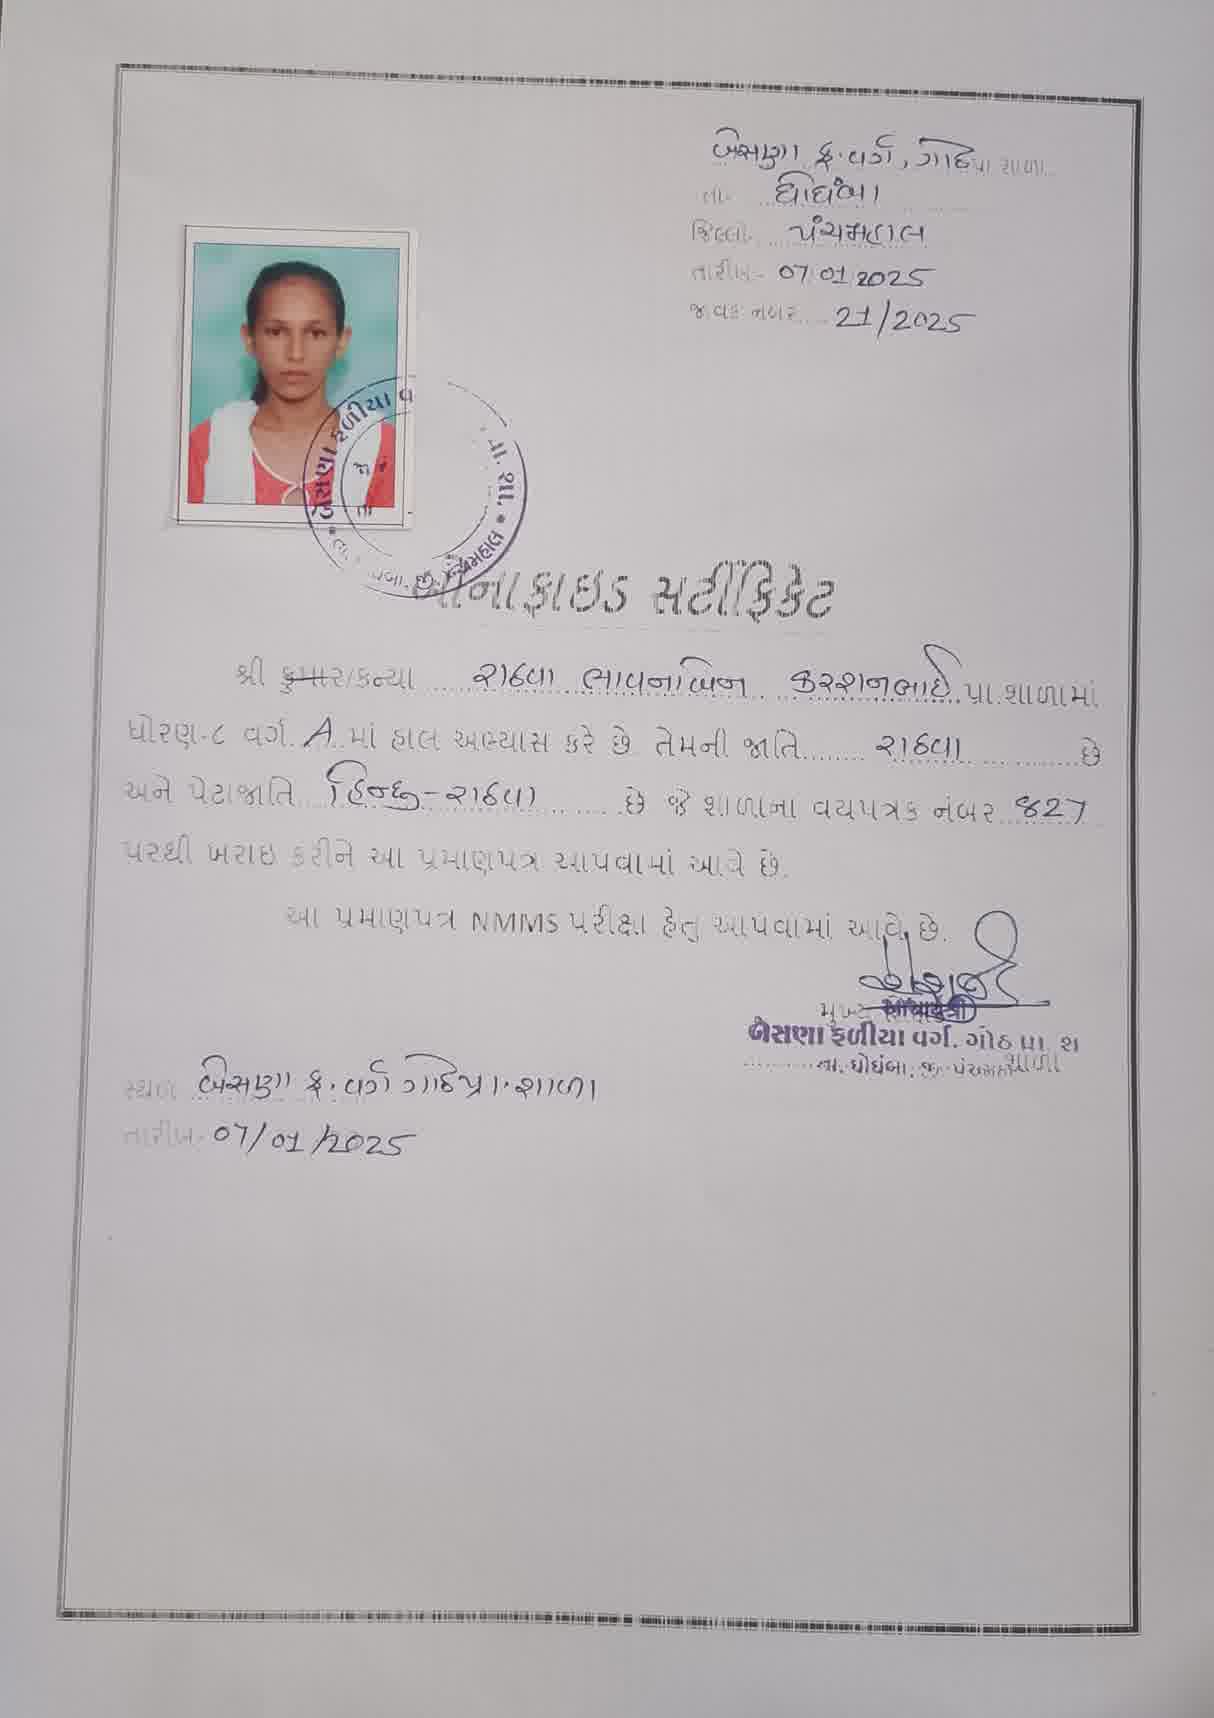 બેસણા ફ. વર્ગ, ગોઠ પ્રા શાળા
તા. ઘોઘંબા
જિલ્લો. પંચમહાલ
તારીખ:- 07/01/2025
જાવક નંબર 21/2025
બેસણા ફળીયા વ પ્રા. શા.
તા. જી. પંચમહાલ
બોનાફાઇડ સર્ટીફિકેટ
શ્રી કુમાર/કન્યા રાઠવા ભાવનાબેન કરશનભાઈ પ્રા.શાળામાં
ધોરણ-૮ વર્ગ. A માં હાલ અભ્યાસ કરે છે. તેમની જાતિ રાઠવા છે
અને પેટાજાતિ હિન્દુ-રાઠવા છે જે શાળાના વયપત્રક નંબર 827
પરથી ખરાઇ કરીને આ પ્રમાણપત્ર આપવામાં આવે છે.
આ પ્રમાણપત્ર NMMS પરીક્ષા હેતુ આપવામાં આવે છે.
મુખ્ય આચાર્યશ્રી
બેસણા ફળીયા વર્ગ. ગોઠ પ્રા. શાળા
તા. ઘોઘંબા. જી. પંચમહાલ
સ્થળ બેસણા ફ. વર્ગ ગોઠ પ્રા. શાળા
તારીખ:- 07/01/2025